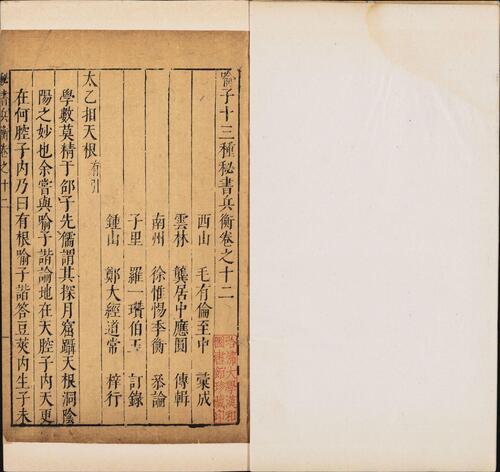 喻子十三種秘書兵衡卷之十二
西山　毛有倫至中　彙成
雲林　龔居中應圓　傳輯
南州　徐惟惕季衡　叅論
子里　羅一瓚伯玉　訂錄
鍾山　鄭大經道常　梓行
太乙扣天根 有引
學數莫精于邵子先儒謂其探月窟躡天根洞陰
陽之妙也余嘗與喻子諧論地在天腔子內天更
在何腔子內乃曰有根喻子諧答豆莢內生子未
秘書兵衡卷之十二